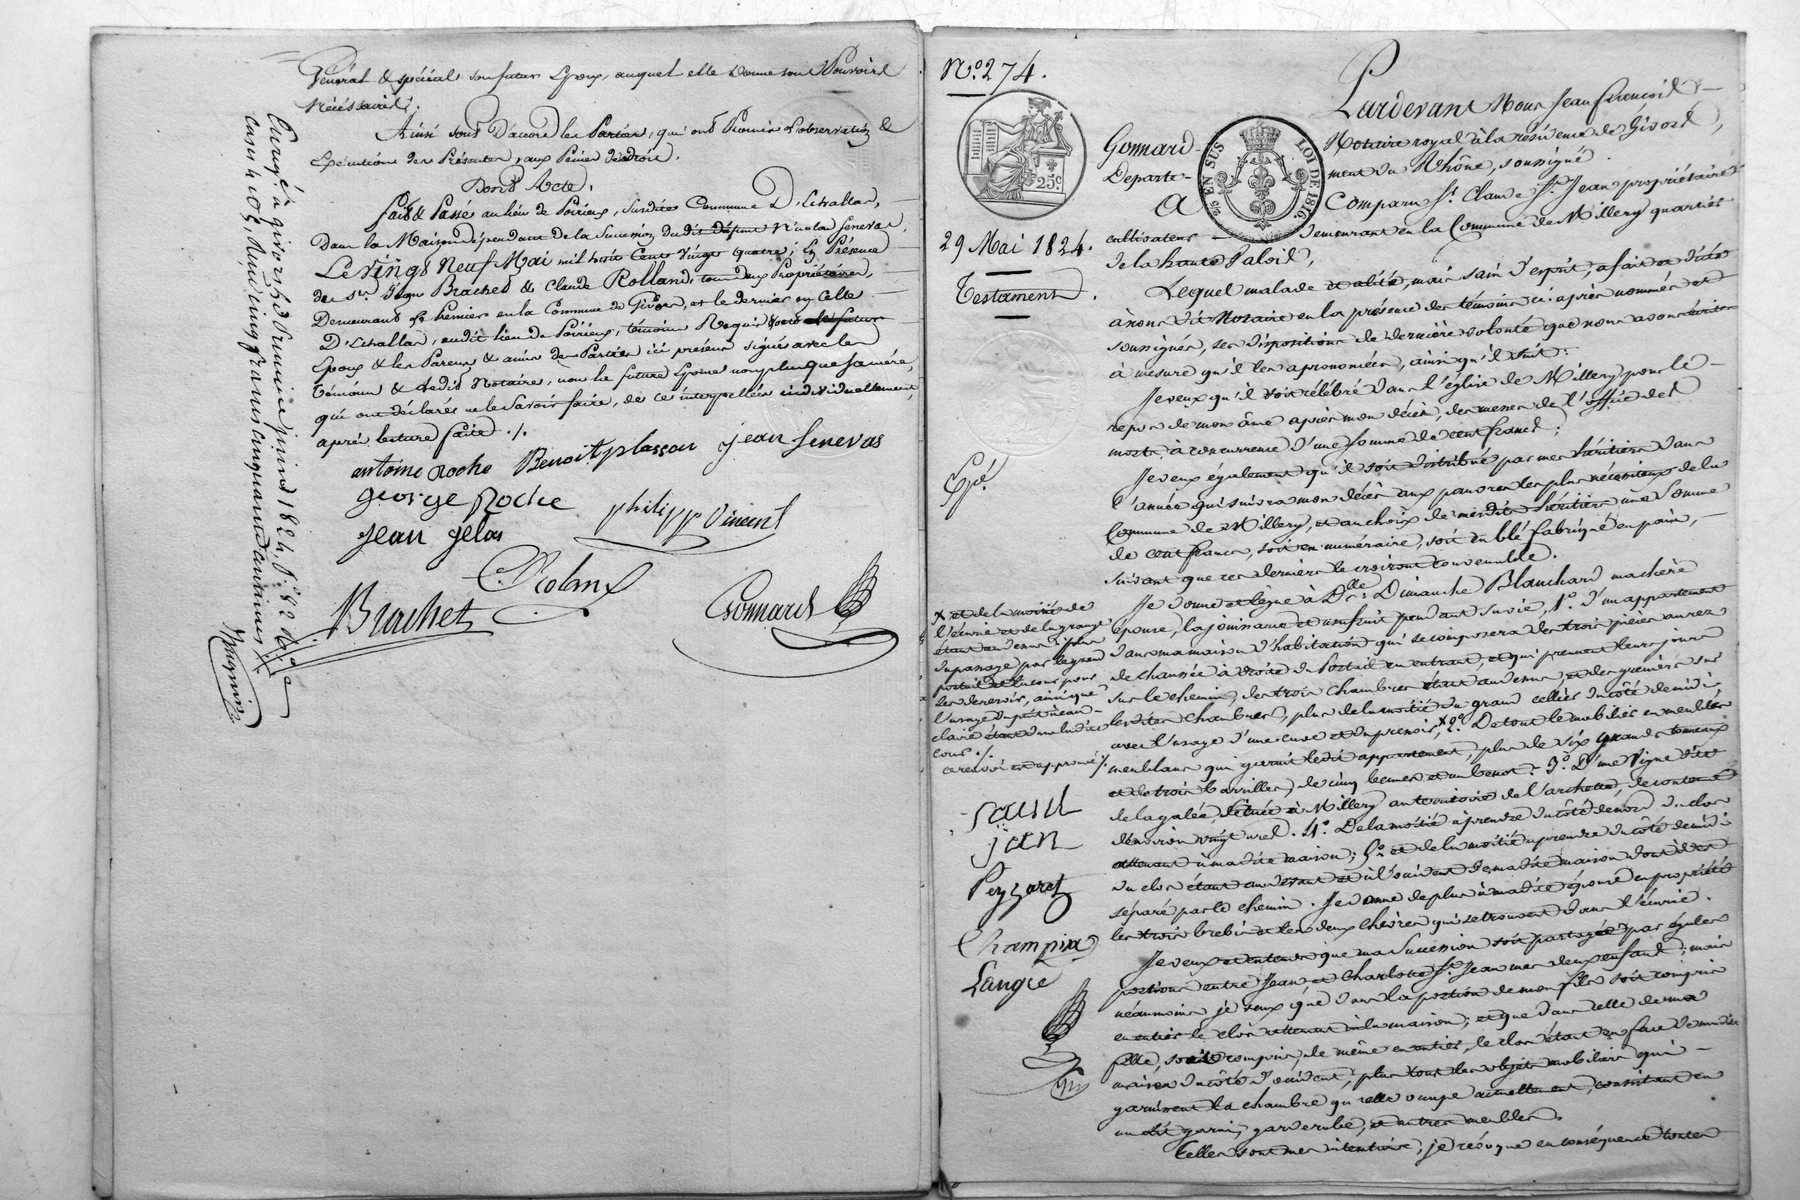 Général & spécial son futur Epoux, auquel elle donne tout Pouvoirs
Nécéssaires.
Ainsi sont D'accord les Parties, qui ont Promis l'observation &
Exécution des Présentes, aux Peines de droit.
Dont Acte,
fait & Passé au lieu de Poirieux, susdite Commune D'Echallas,
Dans la Maison dépendant de la Succession dudit défunt Nicolas Senevas,
Le vingt Neuf Mai mil huit Cent Vingt quatre; En Présence
de Srs Jean Brachet & Claude Rolland, tous deux Propriétaires,
Demeurant le Premier en la Commune de Givors, et le dernier en Celle
D'Echallas, audit lieu de Poirieux, témoins Requis
Epoux & les Parens & amis des Parties ici présens signés avec les
témoins & ledit Notaire, non la future Epouse non plus que sa mère,
qui ont déclarés ne le savoir faire, de ce interpellées individuellement,
après lecture faite ./.
antoine Roche Benoit plasson jean senevas
george Roche
philipp Vincent
jean jélas
C Rolland
Brachet
Gonnard
Enrgé à givors le Premier juin 1824, fo 82
Cases 4 et 5, Reçu cinq francs cinquante centimes
No 274.
25c
EN SUS
LOI DE 1816
29 Mai 1824.
Testament.
Expé
Pardevant Nous Jean françois
Gonnard Notaire royal à la résidence de Givors,
Departement du Rhône, soussigné.
A Comparu Sr. Claude St. Jean propriétaire
cultivateur demeurant en la Commune de Millery quartier
de la haute Valois,
Lequel malade et alité, mais sain d'esprit, a fait et dicté
à nous dit Notaire en la présence des témoins ci après nommés et
soussignés, ses dispositions de dernière volonté que nous avons écrites
à mesure qu'il les a prononcées, ainsi qu'il suit:
Je veux qu'il soit célébré dans l'église de Millery pour le
repos de mon âme après mon décès, des messes de l'office des
morts, à concurrence d'une somme de cent francs;
Je veux également qu'il soit distribué par mes héritiers dans
l'année qui suivra mon décès aux pauvres les plus nécessiteux de la
Commune de Millery, et au choix de mesdits héritiers une somme
de cent francs, soit en numéraire, soit en blé fabriqué en pain,
suivant que ces derniers le croiront convenable.
Je donne et lègue à Dlle Dimanche Blanchard ma chère
épouse, la jouissance et usufruit pendant sa vie, 1o. d'un appartement
dans ma maison d'habitation qui se composera des trois pièces au rez
de chaussée à droite du Portail en entrant, et qui prennent leurs jours
sur le chemin, des trois chambres étant au dessus, et des greniers sur
lesdites chambres, plus de la moitié du grand cellier du côté de midi,
avec l'usage d'une cuve et du pressoir, X 2o. De tout le mobilier en meubles
meublans qui garnit ledit appartement, plus de six grands tonneaux
et de trois barrilles, de cinq bennes et un benot. 3o. D'une Vigne dite
de la galée, située à Millery au territoire de l'archette, de contenue
d'environ vingt ares. 4o. De la moitié à prendre du côté de nord du clos
attenant à madite maison; 5o. et de la moitié à prendre du côté de midi
du clos étant au devant et à l'occident de madite maison dont il est
séparé par le chemin. Je donne de plus à madite épouse en propriété
les trois brebis et les deux chèvres qui se trouvent dans l'écurie.
Je veux et entends que ma succession soit partagée par égales
portions entre Jean et Charlotte St. Jean mes deux enfans; mais
néanmoins je veux que dans la portion de mon fils soit compris
en entier le clos attenant à la maison; et que dans celle de ma
fille, soit compris, de même en entier, le clos étant en face de madite
maison du côté d'occident, plus tous les objets mobiliers qui
garnissent la chambre qu'elle occupe actuellement, consistant en
un lit garni, garderobe, et autres meubles.
Telles sont mes intentions, je révoque en conséquence toutes
X et de la moitié de
l'écurie et de la grange
étant au dessus, plus
du passage par le grand
portail et la cour pour
les desservir, ainsi que
l'usage du puit à eau
claire étant dans ladite
cour ./.
ce renvoi est approuvé ./.
Saint
jan
Peyzaret
Champin
Langre